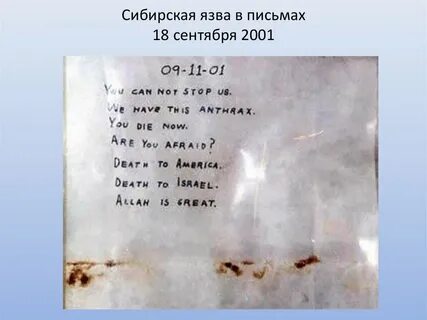 Сибирская язва в письмах
18 сентября 2001
09-11-01
YOU CAN NOT STOP US.
WE HAVE THIS ANTHRAX.
YOU DIE NOW.
ARE YOU AFRAID?
DEATH TO AMERICA.
DEATH TO ISRAEL.
ALLAH IS GREAT.